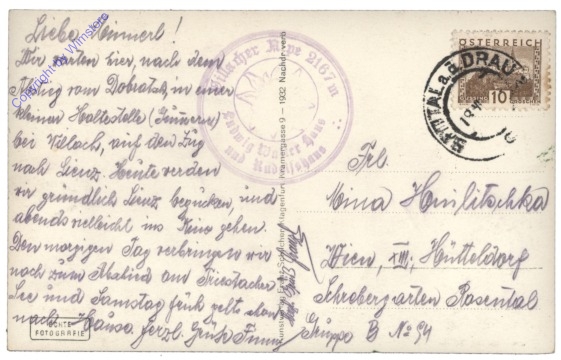 Liebe Minnerl!
Wir warten hier, nach dem
Abstieg vom Dobratsch, in einer
kleinen Haltestelle
bei Villach, auf den Zug
nach Lienz. Heute werden
wir gründlich Lienz begucken, und
abends vielleicht ins Kino gehen.
Den morgigen Tag verbringen wir
noch zum Abschied am Tristacher
See und Samstag früh geht's schon
nach Hause. Herzl. Grüße
Copyright by Wilmstere
Villacher Alpe 2167 m
Ludwig Walter Haus
und Rudolfshaus
ÖSTERREICH
10
SPITTAL a. d. DRAU
9 – 1932 Nachdr. verb.
Frl.
Mina Hnilitschka
Wien, XIII., Hütteldorf
Schrebergarten Rosental
Gruppe B No 94
ECHTE
FOTOGRAFIE